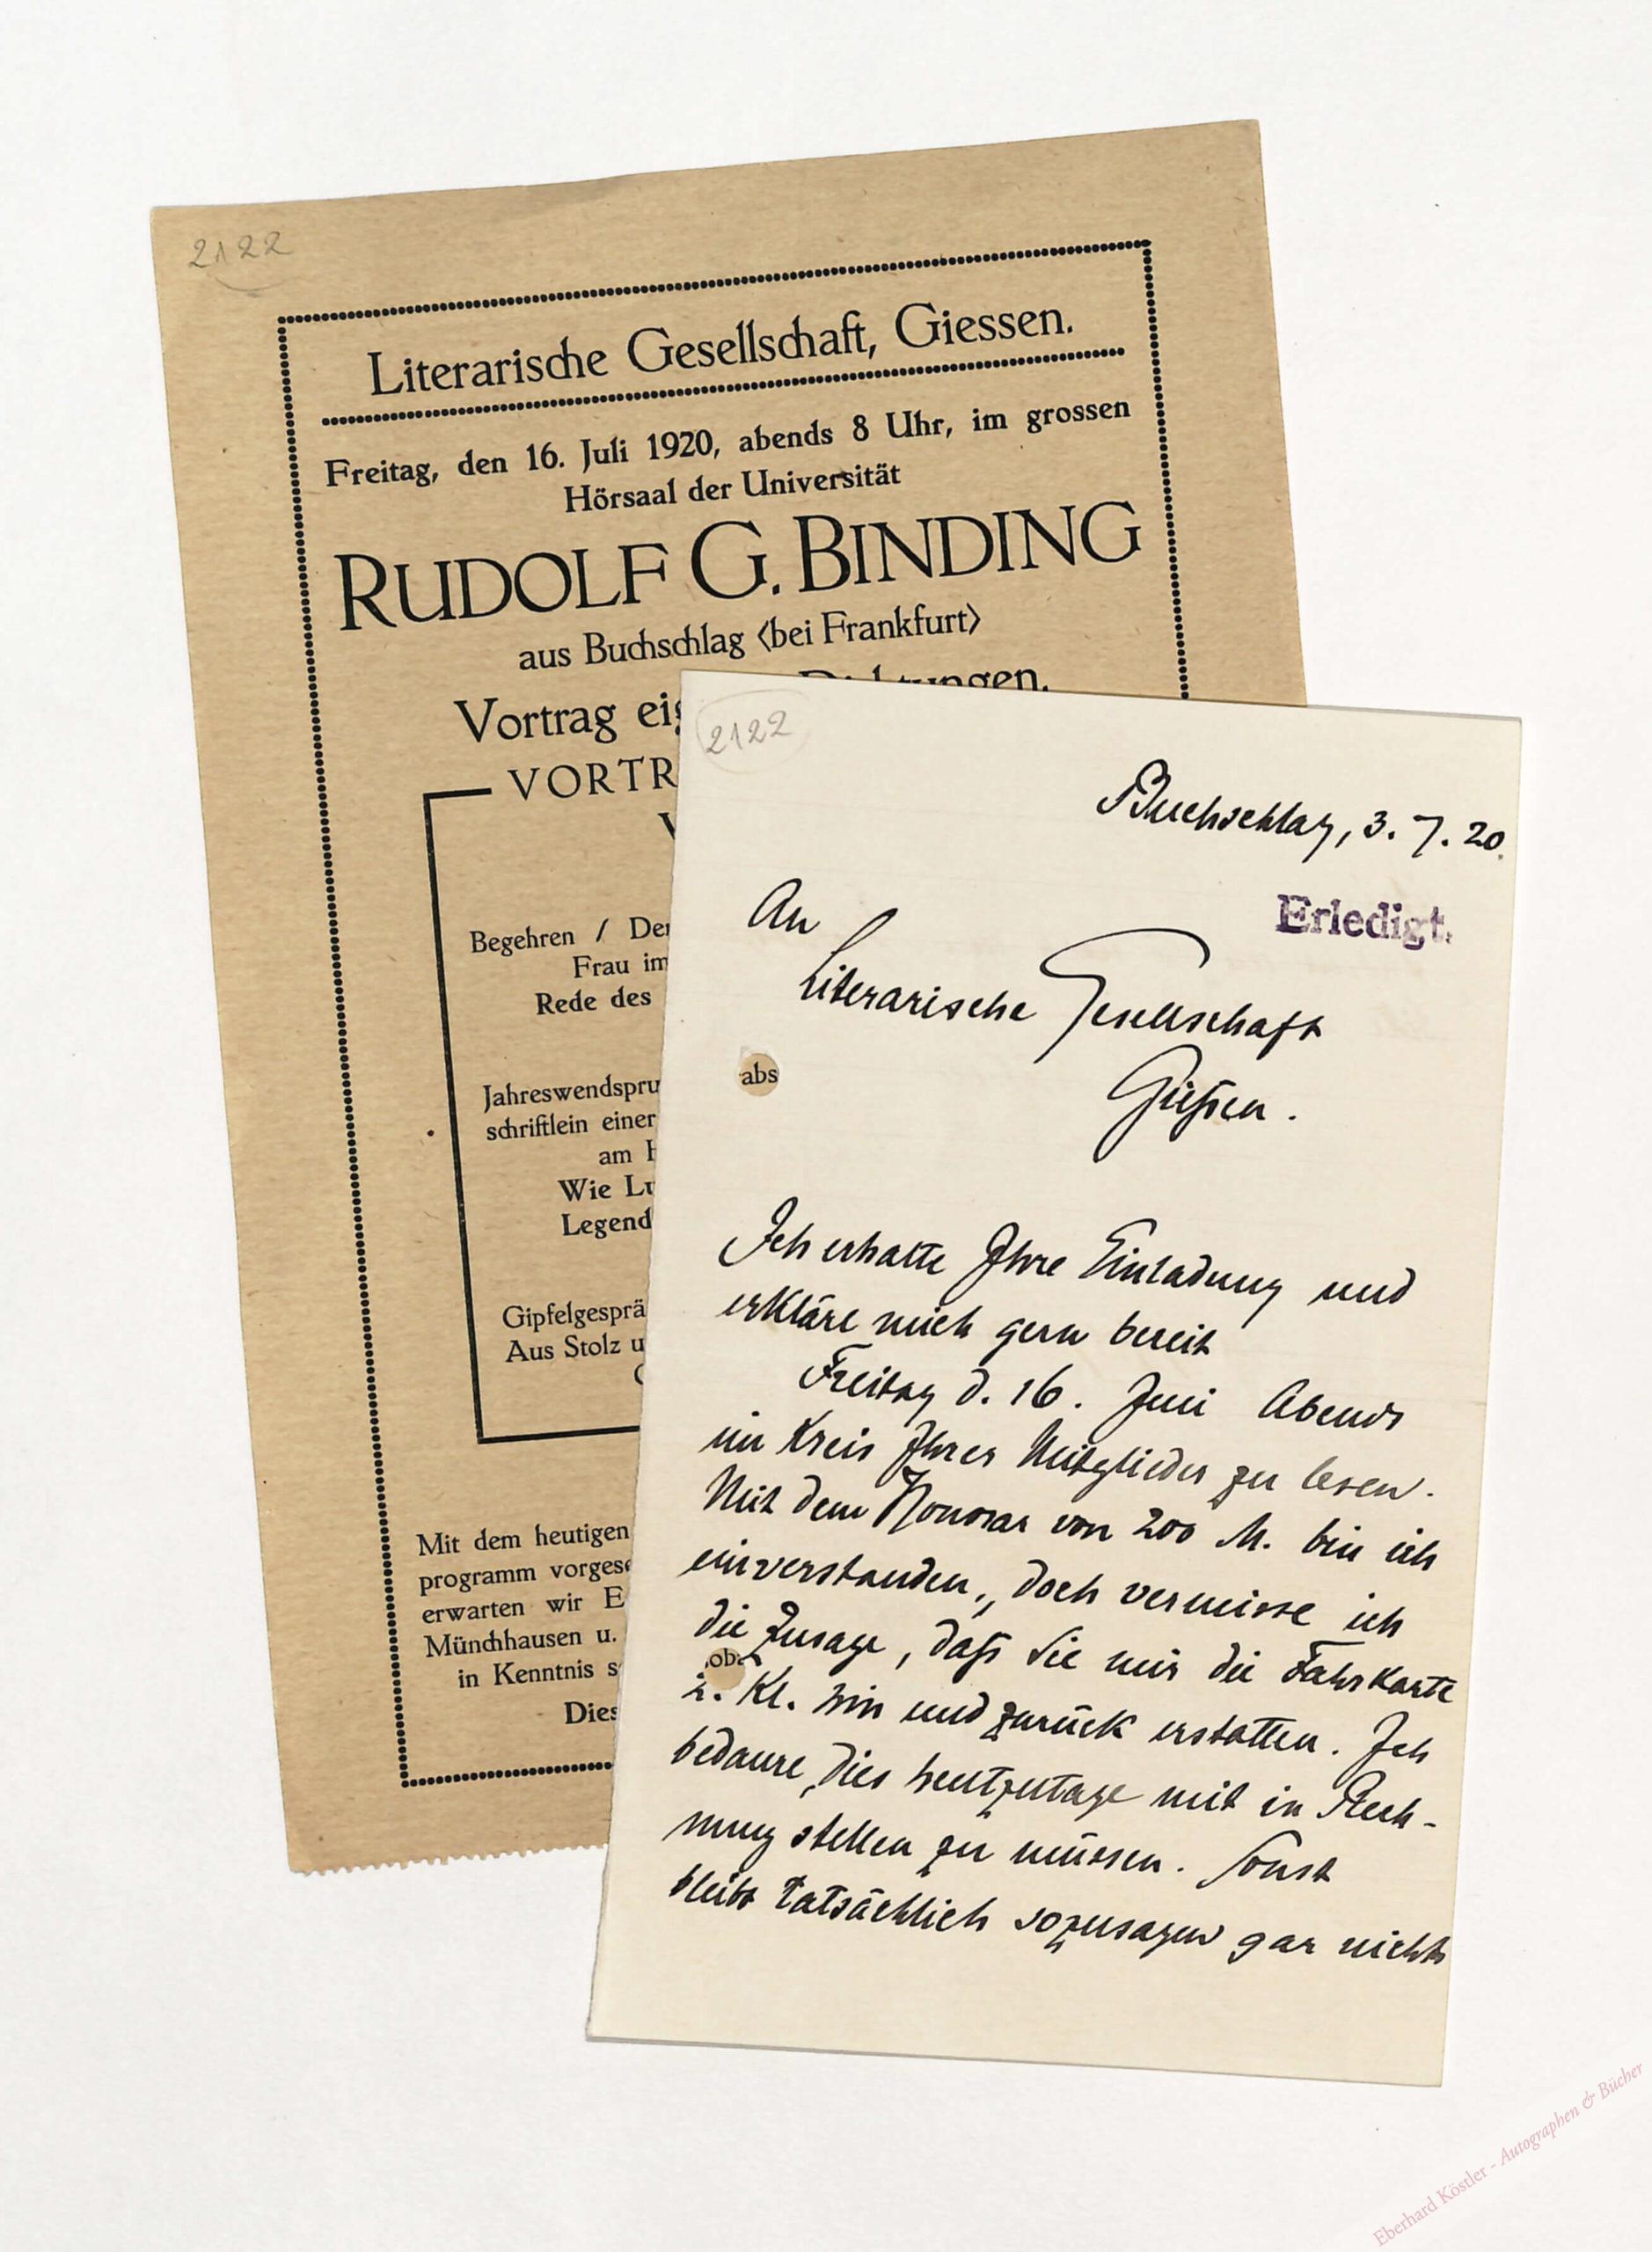 2122
Literarische Gesellschaft, Giessen.
Freitag, den 16. Juli 1920, abends 8 Uhr, im grossen
Hörsaal der Universität
RUDOLF G. BINDING
aus Buchschlag (bei Frankfurt)
Vortrag eig
VORTR
Begehren / Der
Frau im
Rede des
Jahreswendspru
schriftlein einer
am H
Wie Lu
Legend
Gipfelgesprä
Aus Stolz u
Mit dem heutigen
programm vorgese
erwarten wir E
Münchhausen u.
in Kenntnis s
Dies
2122
Buchschlag, 3. 7. 20.
Erledigt.
An
Literarische Gesellschaft
abs
Gießen.
Ich erhalte Ihre Einladung und
erkläre mich gern bereit
Freitag d. 16. Juni Abends
im Kreis Ihrer Mitglieder zu lesen.
Mit dem Honorar von 200 M. bin ich
einverstanden, doch vermisse ich
die Zusage, daß Sie mir die Fahrkarte
2. Kl. hin und zurück erstatten. Ich
bedaure, dies heutzutage mit in Rech-
nung stellen zu müssen. Sonst
bleibt tatsächlich sozusagen gar nichts
Eberhard Köstler - Autographen & Bücher